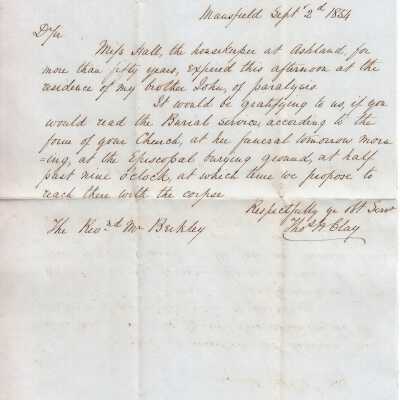 Mansfield Septr 2d 1854
Dr Sir
Miss Hall, the housekeeper at Ashland, for
more than fifty years, expired this afternoon at the
residence of my brother John, of paralysis
It would be gratifying to us, if you
would read the Burial service, according to the
form of your Church, at her funeral tomorrow morn
=ing, at the Episcopal burying ground, at half
past nine o'clock, at which time we propose to
reach there with the corpse
Respectfully yr obt Servt
Thos H Clay
The Revnd Mr Berkley